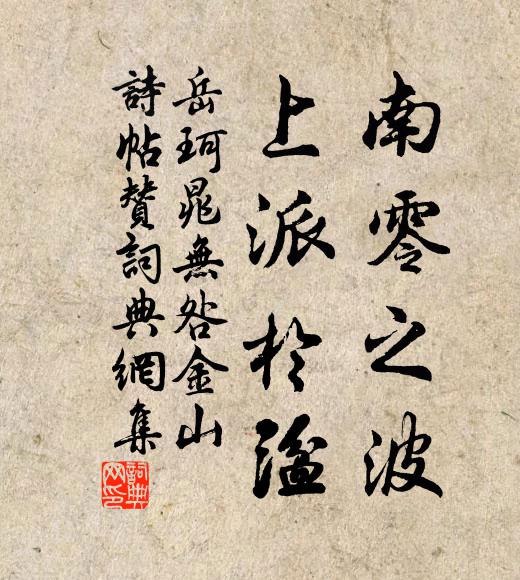 南零之波
上派於湓
岳珂晁無咎金山
詩帖贊詞典網集
詞典网印